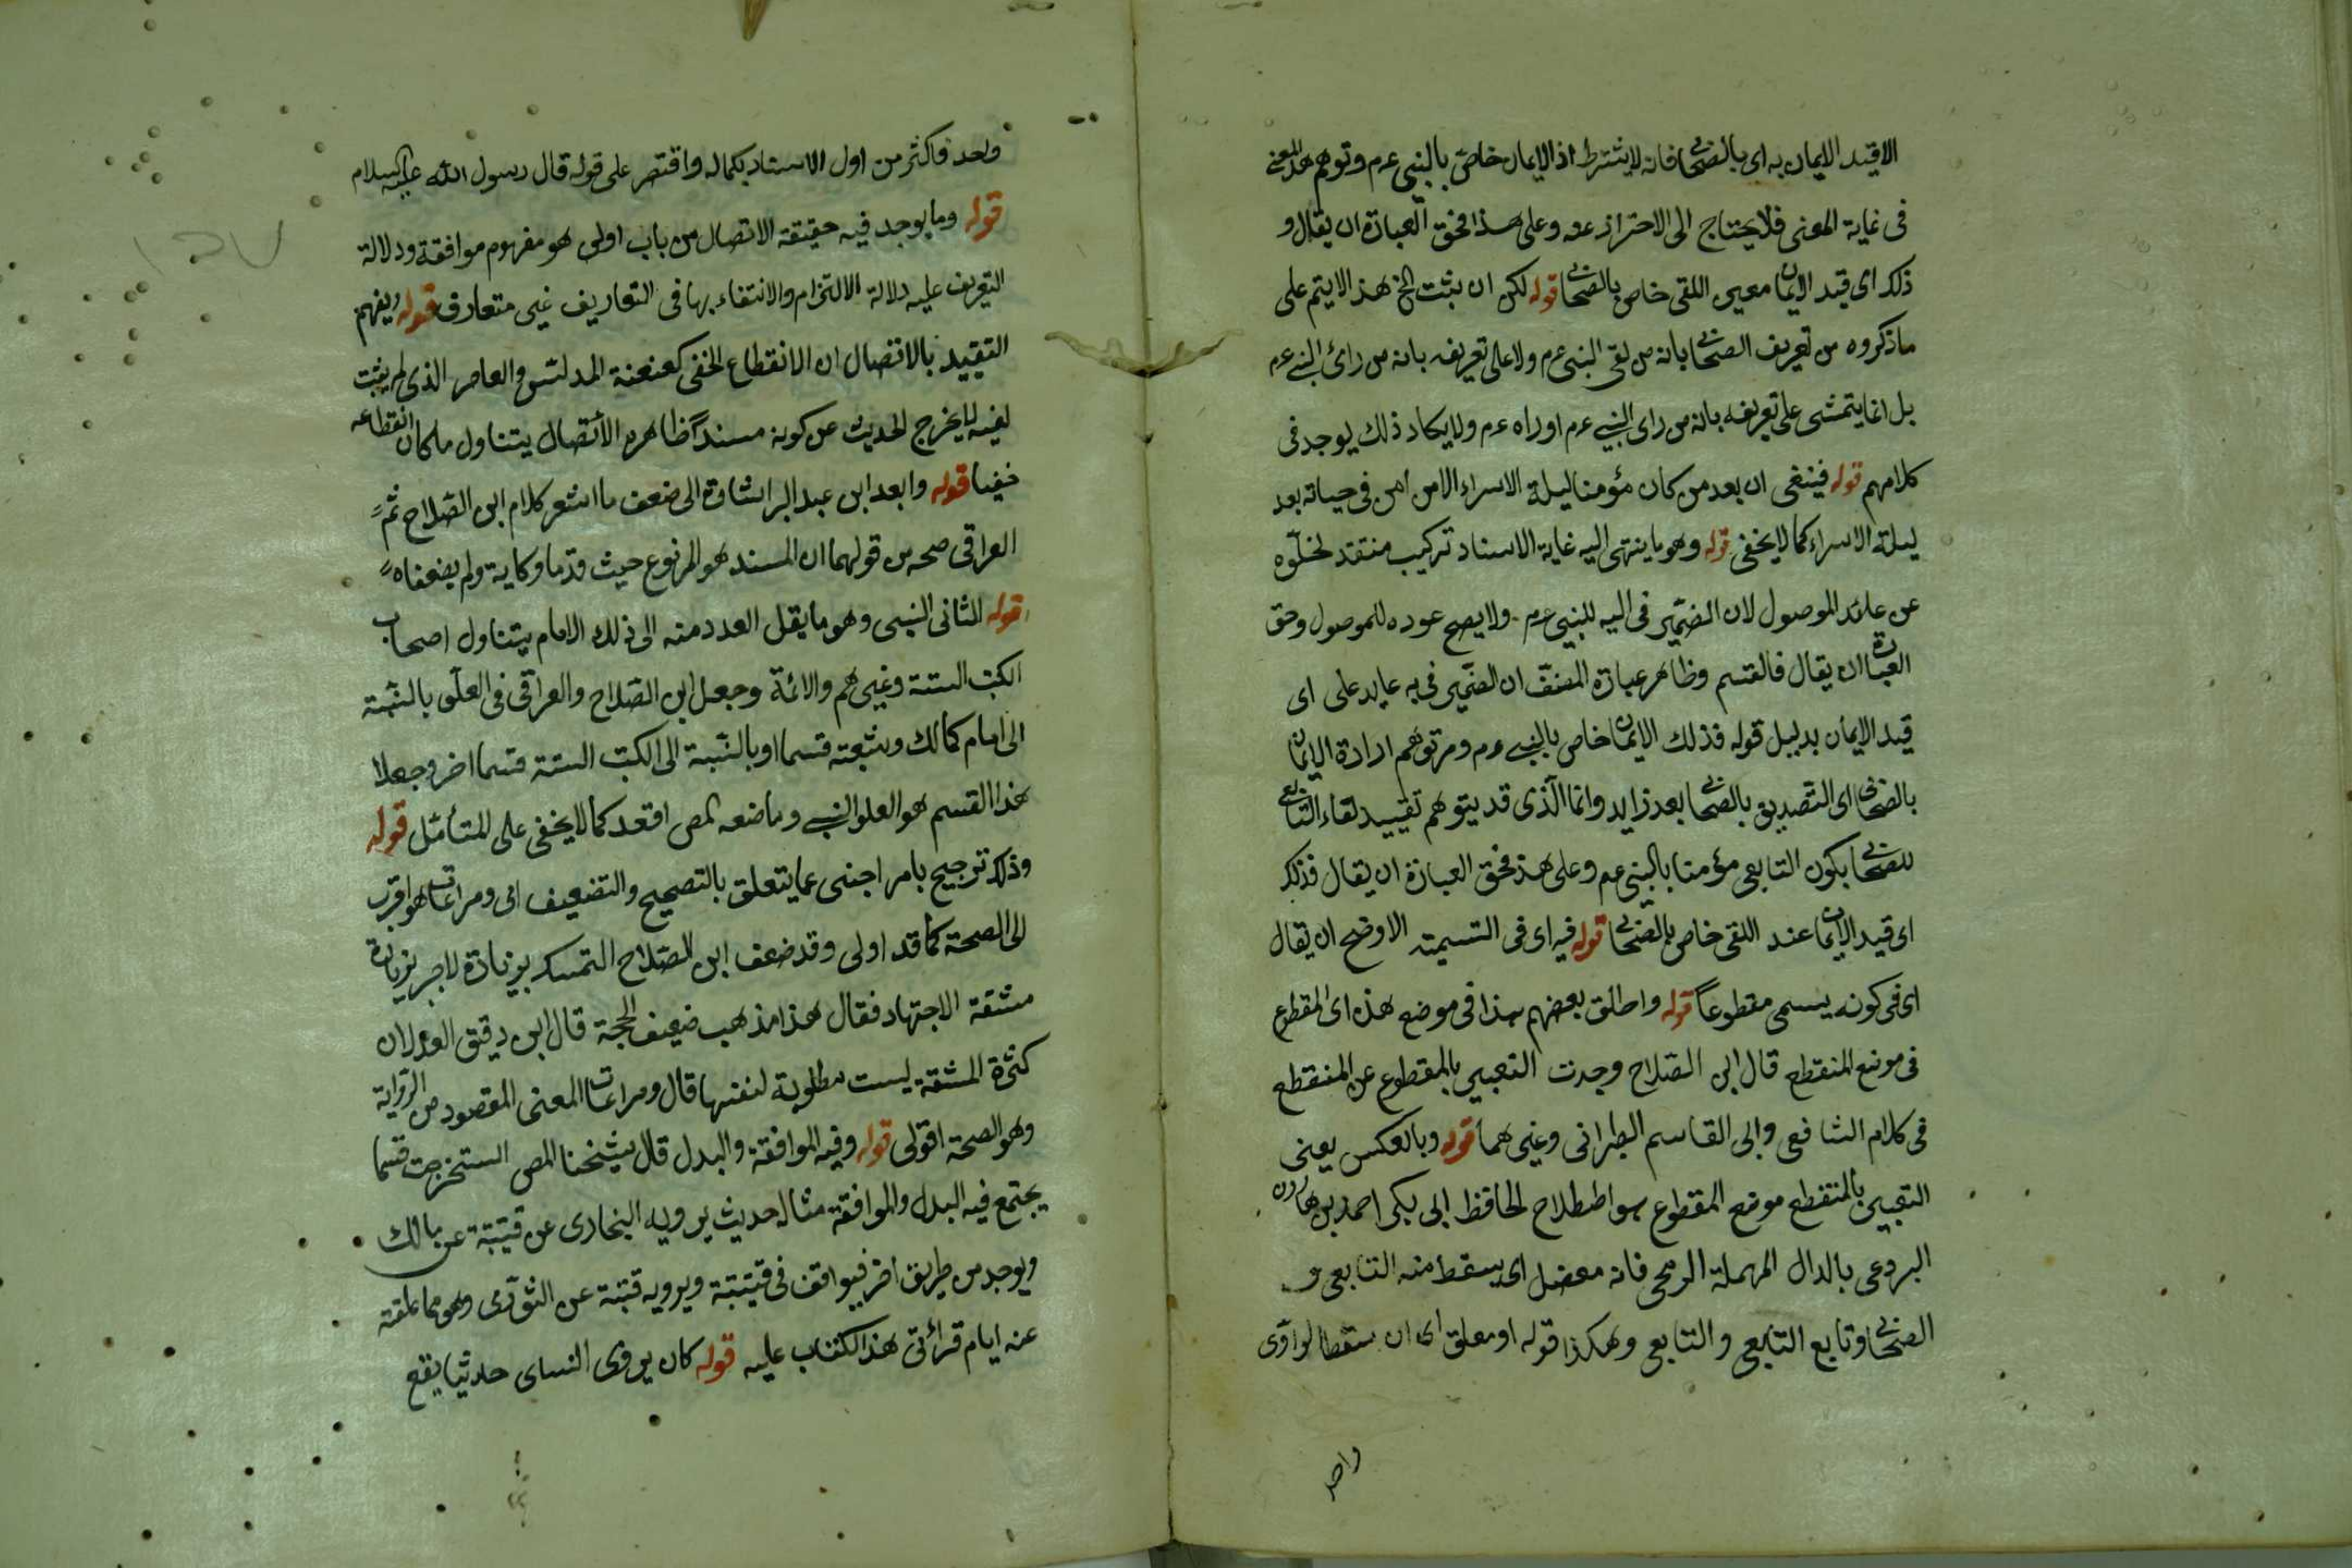 الا قيد الايمان به اى بالصحابى فانه لا يشترط اذ الايمان خاص بالنبى عم وتوهم هذا المعنى
فى غاية المعنى فلا يحتاج الى الاحتراز عنه وعلى هذا فحق العبارة ان يقال و
ذلك اى قيد الايمان معين اللقى خاص بالصحابى قوله لكن ان يثبت الخ هذا لا يتم على
ما ذكروه من تعريف الصحابى بانه من لقى النبى عم ولا على تعريفه بانه من رأى النبى عم
بل انما يتمشى على تعريفه بانه من راى النبى عم او راه عم ولا يكاد ذلك يوجد فى
كلامهم قوله فينبغى ان يعد من كان مؤمنا ليلة الاسراء الا من امن فى حياته بعد
ليلة الاسراء كما لا يخفى قوله وهو ما ينتهى اليه غاية الاسناد تركيب منتقد لخلوه
عن عائد الموصول لان الضمير فى اليه للنبى عم ولا يصح عوده للموصول وحق
العبارة ان يقال فالقسم وظاهر عبارة المصنف ان الضمير فى به عايد على اى
قيد الايمان بدليل قوله فذلك الايمان خاص بالنبى عم ومر توهم ارادة الايمان
بالصحابى اى التصديق بالصحابى بعد زايد وانما الذى قد يتوهم تقييد لقاء التابعى
للصحابى بكون التابعى مؤمنا بالنبى عم وعلى هذا فحق العبارة ان يقال فذلك
اى قيد الايمان عند اللقى خاص بالصحابى قوله فيه اى فى التسمية الاوضح ان يقال
اى فى كونه يسمى مقطوعاً قوله واطلق بعضهم هذا فى موضع هذه اى المقطوع
فى موضع المنقطع قال ابن الصلاح وجدت التعبير بالمقطوع عن المنقطع
فى كلام الشافعى وابى القاسم الطبرانى وغيرهما قوله وبالعكس يعنى
التعبير بالمنقطع موضع المقطوع هو اصطلاح الحافظ ابى بكر احمد بن هارون
البردعى بالدال المهملة البرديجى فانه معضل اى يسقط منه التابعى و
الصحابى او تابع التابعى والتابعى وهكذا قوله او معلق اى ان سقط الراوى
واحد
واحد فاكثر من اول الاسناد بكماله واقتصر على قوله قال رسول الله عليه السلام
قوله وما يوجد فيه حقيقة الاتصال من باب اولى هو مفهوم موافقة ودلالة
التعريف عليه دلالة الالتزام والاكتفاء بها فى التعاريف غير متعارف قوله ويفهم
التقييد بالاتصال ان الانقطاع الخفى كعنعنة المدلس والمعاصر الذى لم يثبت
لقيه لا يخرج الحديث عن كونه مسنداً ظاهره الاتصال يتناول ما كان انقطاعه
خفيا قوله وابعد ابن عبد البر اشارة الى ضعف ما اشعر كلام ابن الصلاح ثم
العراقى صحه من قولهما ان المسند هو المرفوع حيث قدما وكاية ولم يضعفاه
قوله الثانى النسبى وهو ما يقل العدد منه الى ذلك الامام يتناول اصحاب
الكتب الستة وغيرهم والائمة وجعل ابن الصلاح والعراقى فى العلو بالنسبة
الى امام كمالك وشعبة قسما او بالنسبة الى الكتب الستة قسما اخر وجعلا
هذا القسم هو العلو النسبى وما صنعه المص اقعد كما لا يخفى على المتأمل قوله
وذلك ترجيح بامر اجنبى عما يتعلق بالتصحيح والتضعيف اى ومراعات ما هو اقرب
الى الصحة كما قد اولى وقد ضعف ابن الصلاح التمسك بزيادة الاجر بزيادة
مشقة الاجتهاد فقال هذا مذهب ضعيف الحجة قال ابن دقيق العيد لان
كثرة المشقة ليست مطلوبة لنفسها قال ومراعات المعنى المقصود من الرواية
وهو الصحة اولى قوله وفيه الموافقة والبدل قال شيخنا المص استخرجت قسما
يجتمع فيه البدل والموافقة مثاله حديث يرويه البخارى عن قتيبة عن مالك
ويوجد من طريق اخر فيوافق فى قتيبة ويرويه قتيبة عن الثورى وهو مما علقته
عنه ايام قرائتى هذا الكتاب عليه قوله كان يروى النساى حديثا يقع